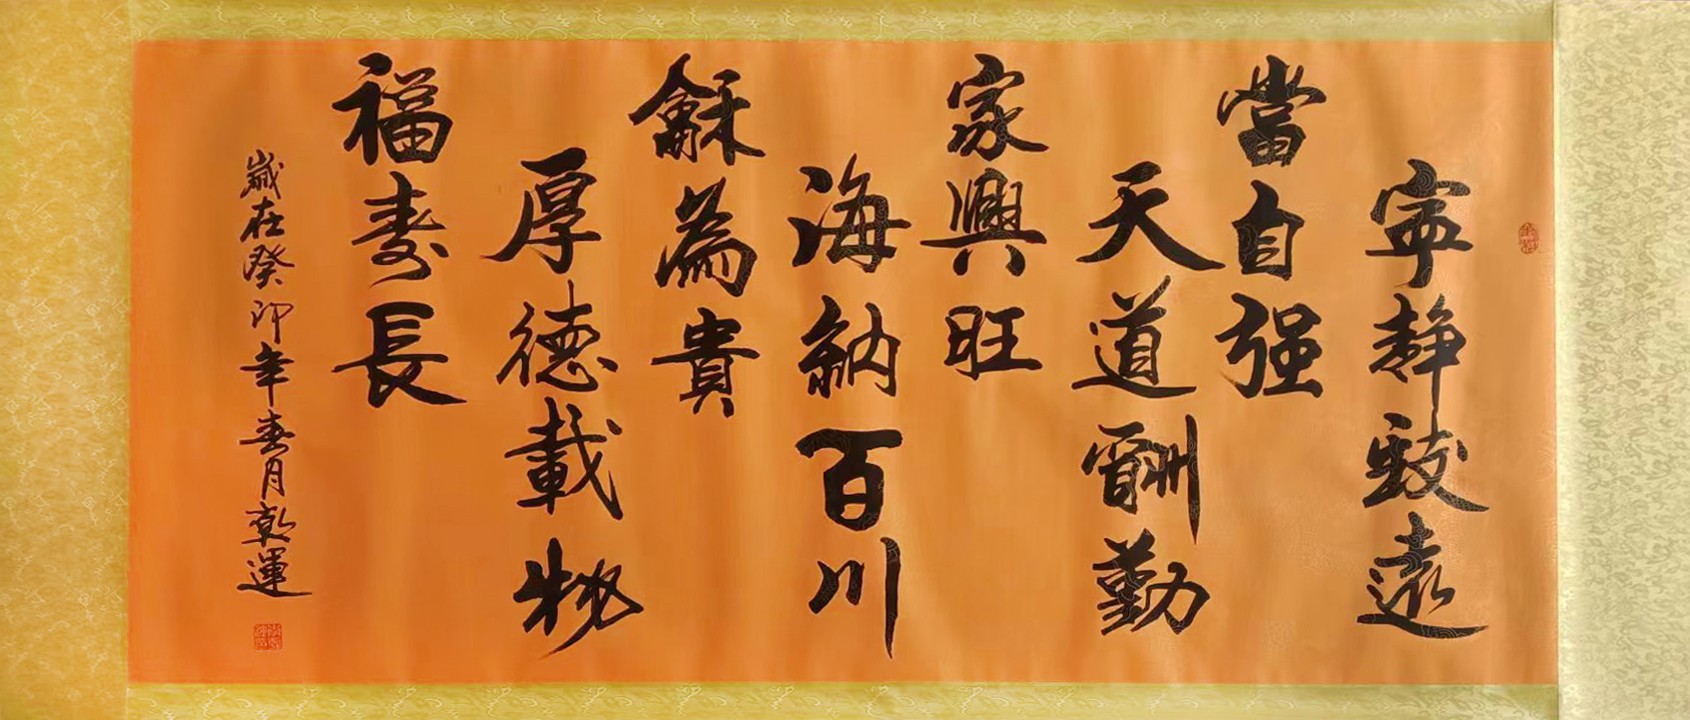 寧静致遠
當自强
天道酬勤
家興旺
海納百川
龢為貴
厚德載物
福壽長
歲在癸卯年春月乾運